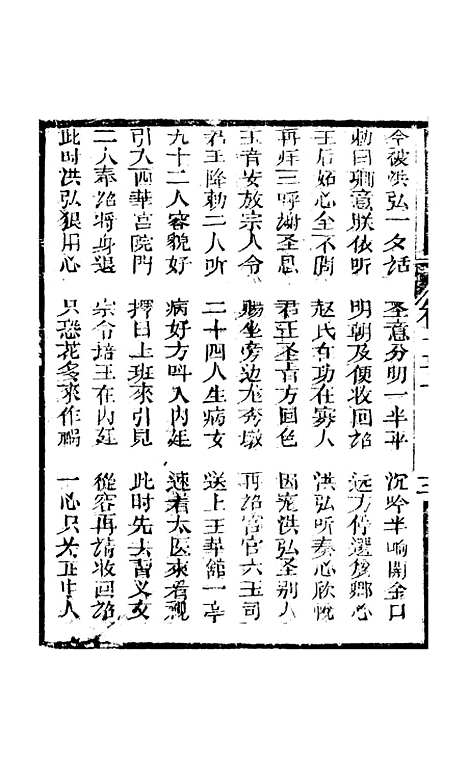 今被洪弘一夕話 圣意分明一半平 沉吟半晌開金口
勅曰卿意朕依听 明朝及便收回詔 远方停選復鄉心
王后姑心全不開 赵氏有功在寡人 洪弘听奏心欣恱
再拜三呼謝圣恩 君王圣旨方回色 因寵洪弘圣别人
王音女放宗人令 賜坐旁边龙秀墩 再詔宫官六王司
君王降勅二人听 二十四人生病女 送上王華舘一亭
九十二人容貌好 病好方叫入内廷 速着太医來看視
引入西華宫院門 擇日上班來引見 此時先去習义文
二人奉詔將身退 宗令培王在内廷 從容再請收回詔
此時洪弘狠用心 只恐花多來作賜 一心只为正中人